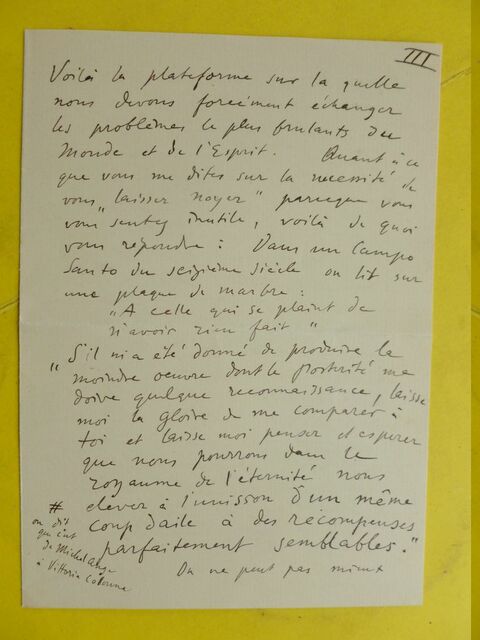 III
Voilà la plateforme sur la quelle
nous devons forcément échanger
les problèmes le plus brulants du
Monde et de l'Esprit. Quant à ce
que vous me dites sur la necessité de
vous "laisser noyer" parceque vous
vous "sentez inutile, voilà de quoi
vous repondre: Dans un Campo
Santo du seizième siècle on lit sur
une plaque de marbre:
"A celle qui se plaint de
n'avoir rien fait"
"S'il m'a été donné de produire la
moindre oeuvre dont la postérité me
doive quelque reconnaissance, laisse
moi la gloire de me comparer à
toi et laisse moi penser et esperer
que nous pourrons dans le
royaume de l'éternité nous
# elever à l'unisson d'un même
coup d'aile à des récompenses
parfaitement semblables."
on dit
que c'est
de Michel Ange
à Vittoria Colonna
On ne peut pas mieux